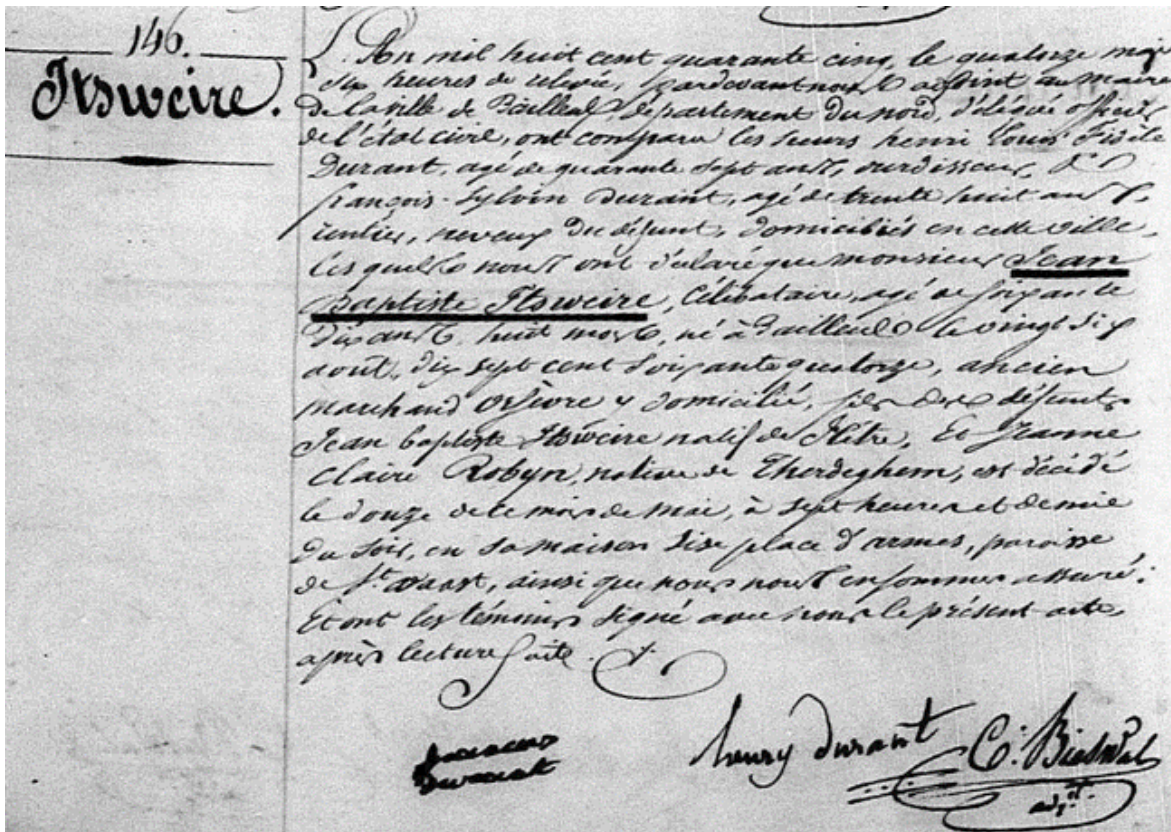 146.
Itsweire.
L'An mil huit cent quarante cinq, le quatorze mai
six heures de relevée, pardevant nous adjoint au maire
de la ville de Bailleul, département du nord, délégué officier
de l'état civil, ont comparu les sieurs henri Louis Fidèle
Durant, agé de quarante sept ans, ourdisseur, &
françois-Sylvin Durant, agé de trente huit ans
rentier, neveux du défunt, domiciliés en cette ville,
Lesquels nous ont déclaré que monsieur Jean
Baptiste Itsweire, Célibataire, agé de soixante
dix ans, huit mois, né à Bailleul le vingt six
août, dix sept cent soixante quatorze, ancien
marchand orfèvre y domicilié, fils des défunts
Jean baptiste Itsweire natif de Flêtre, Et Jeanne
Claire Robyn, native de Therdeghem, est décédé
le douze de ce mois de mai, à sept heures et demie
du soir, en sa maison sise place d'armes, paroisse
de St. Vaast, ainsi que nous nous en sommes assuré.
Et ont les témoins signé avec nous le présent acte
après lecture faite.
henry durant
Durant
C. Bieswal
adjt.